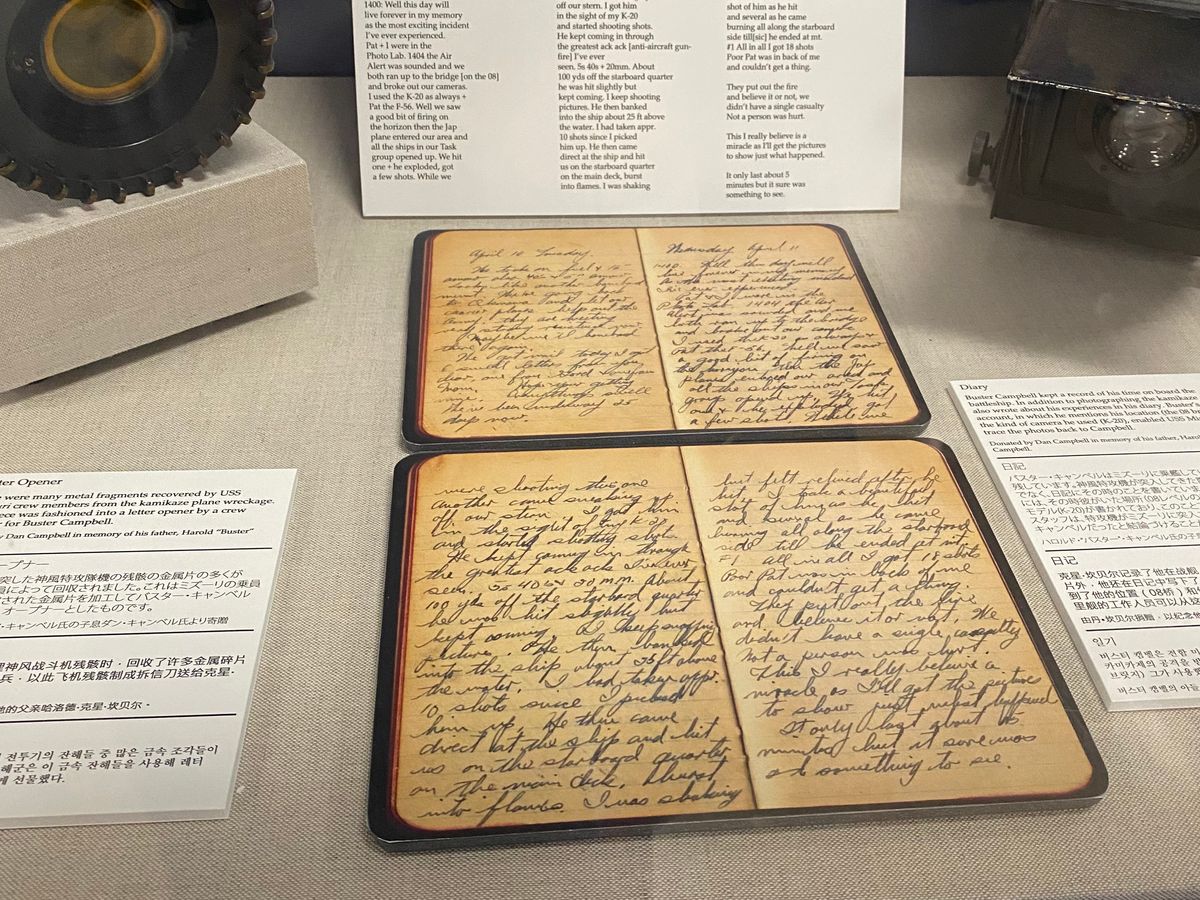 1400: Well this day will
live forever in my memory
as the most exciting incident
I've ever experienced.
Pat + I were in the
Photo Lab. 1404 the Air
Alert was sounded and we
both ran up to the bridge [on the 08]
and broke out our cameras.
I used the K-20 as always +
Pat the F-56. Well we saw
a good bit of firing on
the horizon then the Jap
plane entered our area and
all the ships in our Task
group opened up. We hit
one + he exploded, got
a few shots. While we
off our stern. I got him
in the sight of my K-20
and started shooting shots.
He kept coming in through
the greatest ack ack [anti-aircraft gun-
fire] I've ever
seen. 5s 40s + 20mm. About
100 yds off the starboard quarter
he was hit slightly but
kept coming. I keep shooting
pictures. He then banked
into the ship about 25 ft above
the water. I had taken appr.
10 shots since I picked
him up. He then came
direct at the ship and hit
us on the starboard quarter
on the main deck, burst
into flames. I was shaking
shot of him as he hit
and several as he came
burning all along the starboard
side till[sic] he ended at mt.
#1 All in all I got 18 shots
Poor Pat was in back of me
and couldn't get a thing.
They put out the fire
and believe it or not, we
didn't have a single casualty
Not a person was hurt.
This I really believe is a
miracle as I'll get the pictures
to show just what happened.
It only last about 5
minutes but it sure was
something to see.
April 10 Tuesday
We took on fuel &
looks like another
to Okinawa and let our
carrier planes help out the
there again.
We got mail today &
Everything still
day now.
Wednesday April 11
1400. Well this day will
live forever in my memory
as the most exciting incident
I've ever experienced.
Pat & I were in the
Photo Lab. 1404 the Air
Alert was sounded and we
both ran up to the bridge
and broke out our
I used the K 20 as always
Pat the F-56. Well we saw
a good bit of firing on
the horizon then the Jap
planes entered our area and
all the ships in our Task
group opened up. We hit
one & he exploded, got
a few shots. While we
were shooting this one
another came sneaking up
off our stern. I got him
in the sight of my K-20
and started shooting shots.
He kept coming in through
the greatest ack ack I've ever
seen. 5s 40s & 20 MM. About
100 yds off the starboard quarter
he was hit slightly but
kept coming. I keep snapping
pictures. He then banked
into the ship about 25 ft above
the water. I had taken appr.
10 shots since I picked
him up. He then came
direct at the ship and hit
us on the starboard quarter
on the main deck. Burst
into flames. I was shaking
but felt relieved after he
hit. I took a beautiful
shot of him as he hit
and several as he came
burning all along the starboard
side till he ended at mt.
#1 All in all I got 18 shots
Poor Pat was in back of me
and couldn't get a thing.
They put out the fire
and believe it or not, We
didn't have a single casualty
Not a person was hurt.
This I really believe a
miracle as I'll get the pictures
to show just what happened
It only last about
minutes but it sure was
something to see.
ter Opener
e were many metal fragments recovered by USS
uri crew members from the kamikaze plane wreckage.
ece was fashioned into a letter opener by a crew
r for Buster Campbell.
y Dan Campbell in memory of his father, Harold "Buster"
ープナー
突した神風特攻隊機の残骸の金属片の多くが
員によって回収されました。これはミズーリの乗員
された金属片を加工してバスター・キャンベル
オープナーとしたものです。
・キャンベル氏の子息ダン・キャンベル氏より寄贈
理神风战斗机残骸时，回收了许多金属碎片
兵，以此飞机残骸制成拆信刀送给克星·
他的父亲哈洛德·克星·坎贝尔。
전투기의 잔해들 중 많은 금속 조각들이
해군은 이 금속 잔해들을 사용해 레터
게 선물했다.
Diary
Buster Campbell kept a record of his time on board the
battleship. In addition to photographing the kamikaze
also wrote about his experiences in his diary. Buster's
account, in which he mentions his location (the 08
the kind of camera he used (K-20), enabled USS
trace the photos back to Campbell.
Donated by Dan Campbell in memory of his father, Harold
Campbell.
日記
バスター・キャンベルはミズーリに乗艦して
残しています。神風特攻機が突入してきた
でなく、日記にその時のことを書いていま
には、その時彼がいた場所
モデル(K-20)が書かれており、このこと
スタッフは、特攻機が
キャンベルだったと結論づけること
ハロルド・バスター・キャンベル氏の子息
日记
克星·坎贝尔记录了他在战舰
片外，他还在日记中写下了
到了他的位置（08桥）和
里舰的工作人员可以从这
由丹·坎贝尔捐赠，以纪念他
일기
버스터 캠벨은 전함 미
카미카제의 공격을
브릿지) 그가 사용
버스터 캠벨의 아들